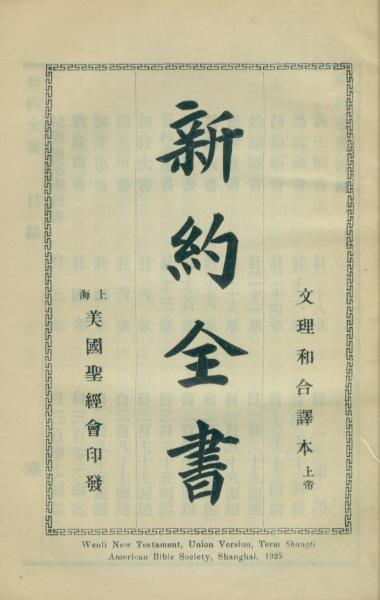 文理和合譯本 上帝
新約全書
上海 美國聖經會印發
Wenli New Testament, Union Version, Term Shangti
American Bible Society, Shanghai, 1925